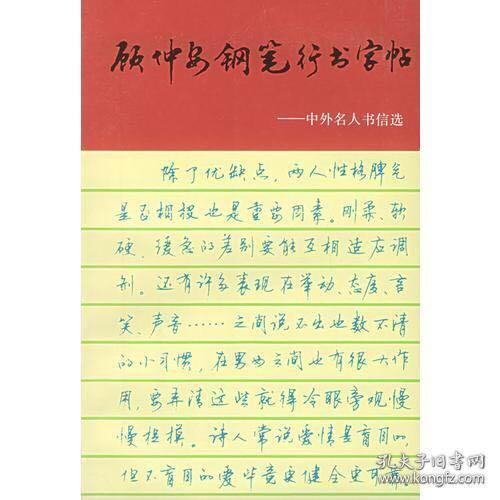 顾仲安钢笔行书字帖
——中外名人书信选
除了优缺点，两人性格脾气
是否相投也是重要因素。刚柔、软
硬、缓急的差别要能互相适应调
剂。还有许多表现在举动、态度、言
笑、声音……之间说不出也数不清
的小习惯，在男女之间也有很大作
用，要弄清这些就得冷眼旁观慢
慢捉摸。诗人常说爱情是盲目的，
但不盲目的爱毕竟更健全更可靠
孔夫子旧书网